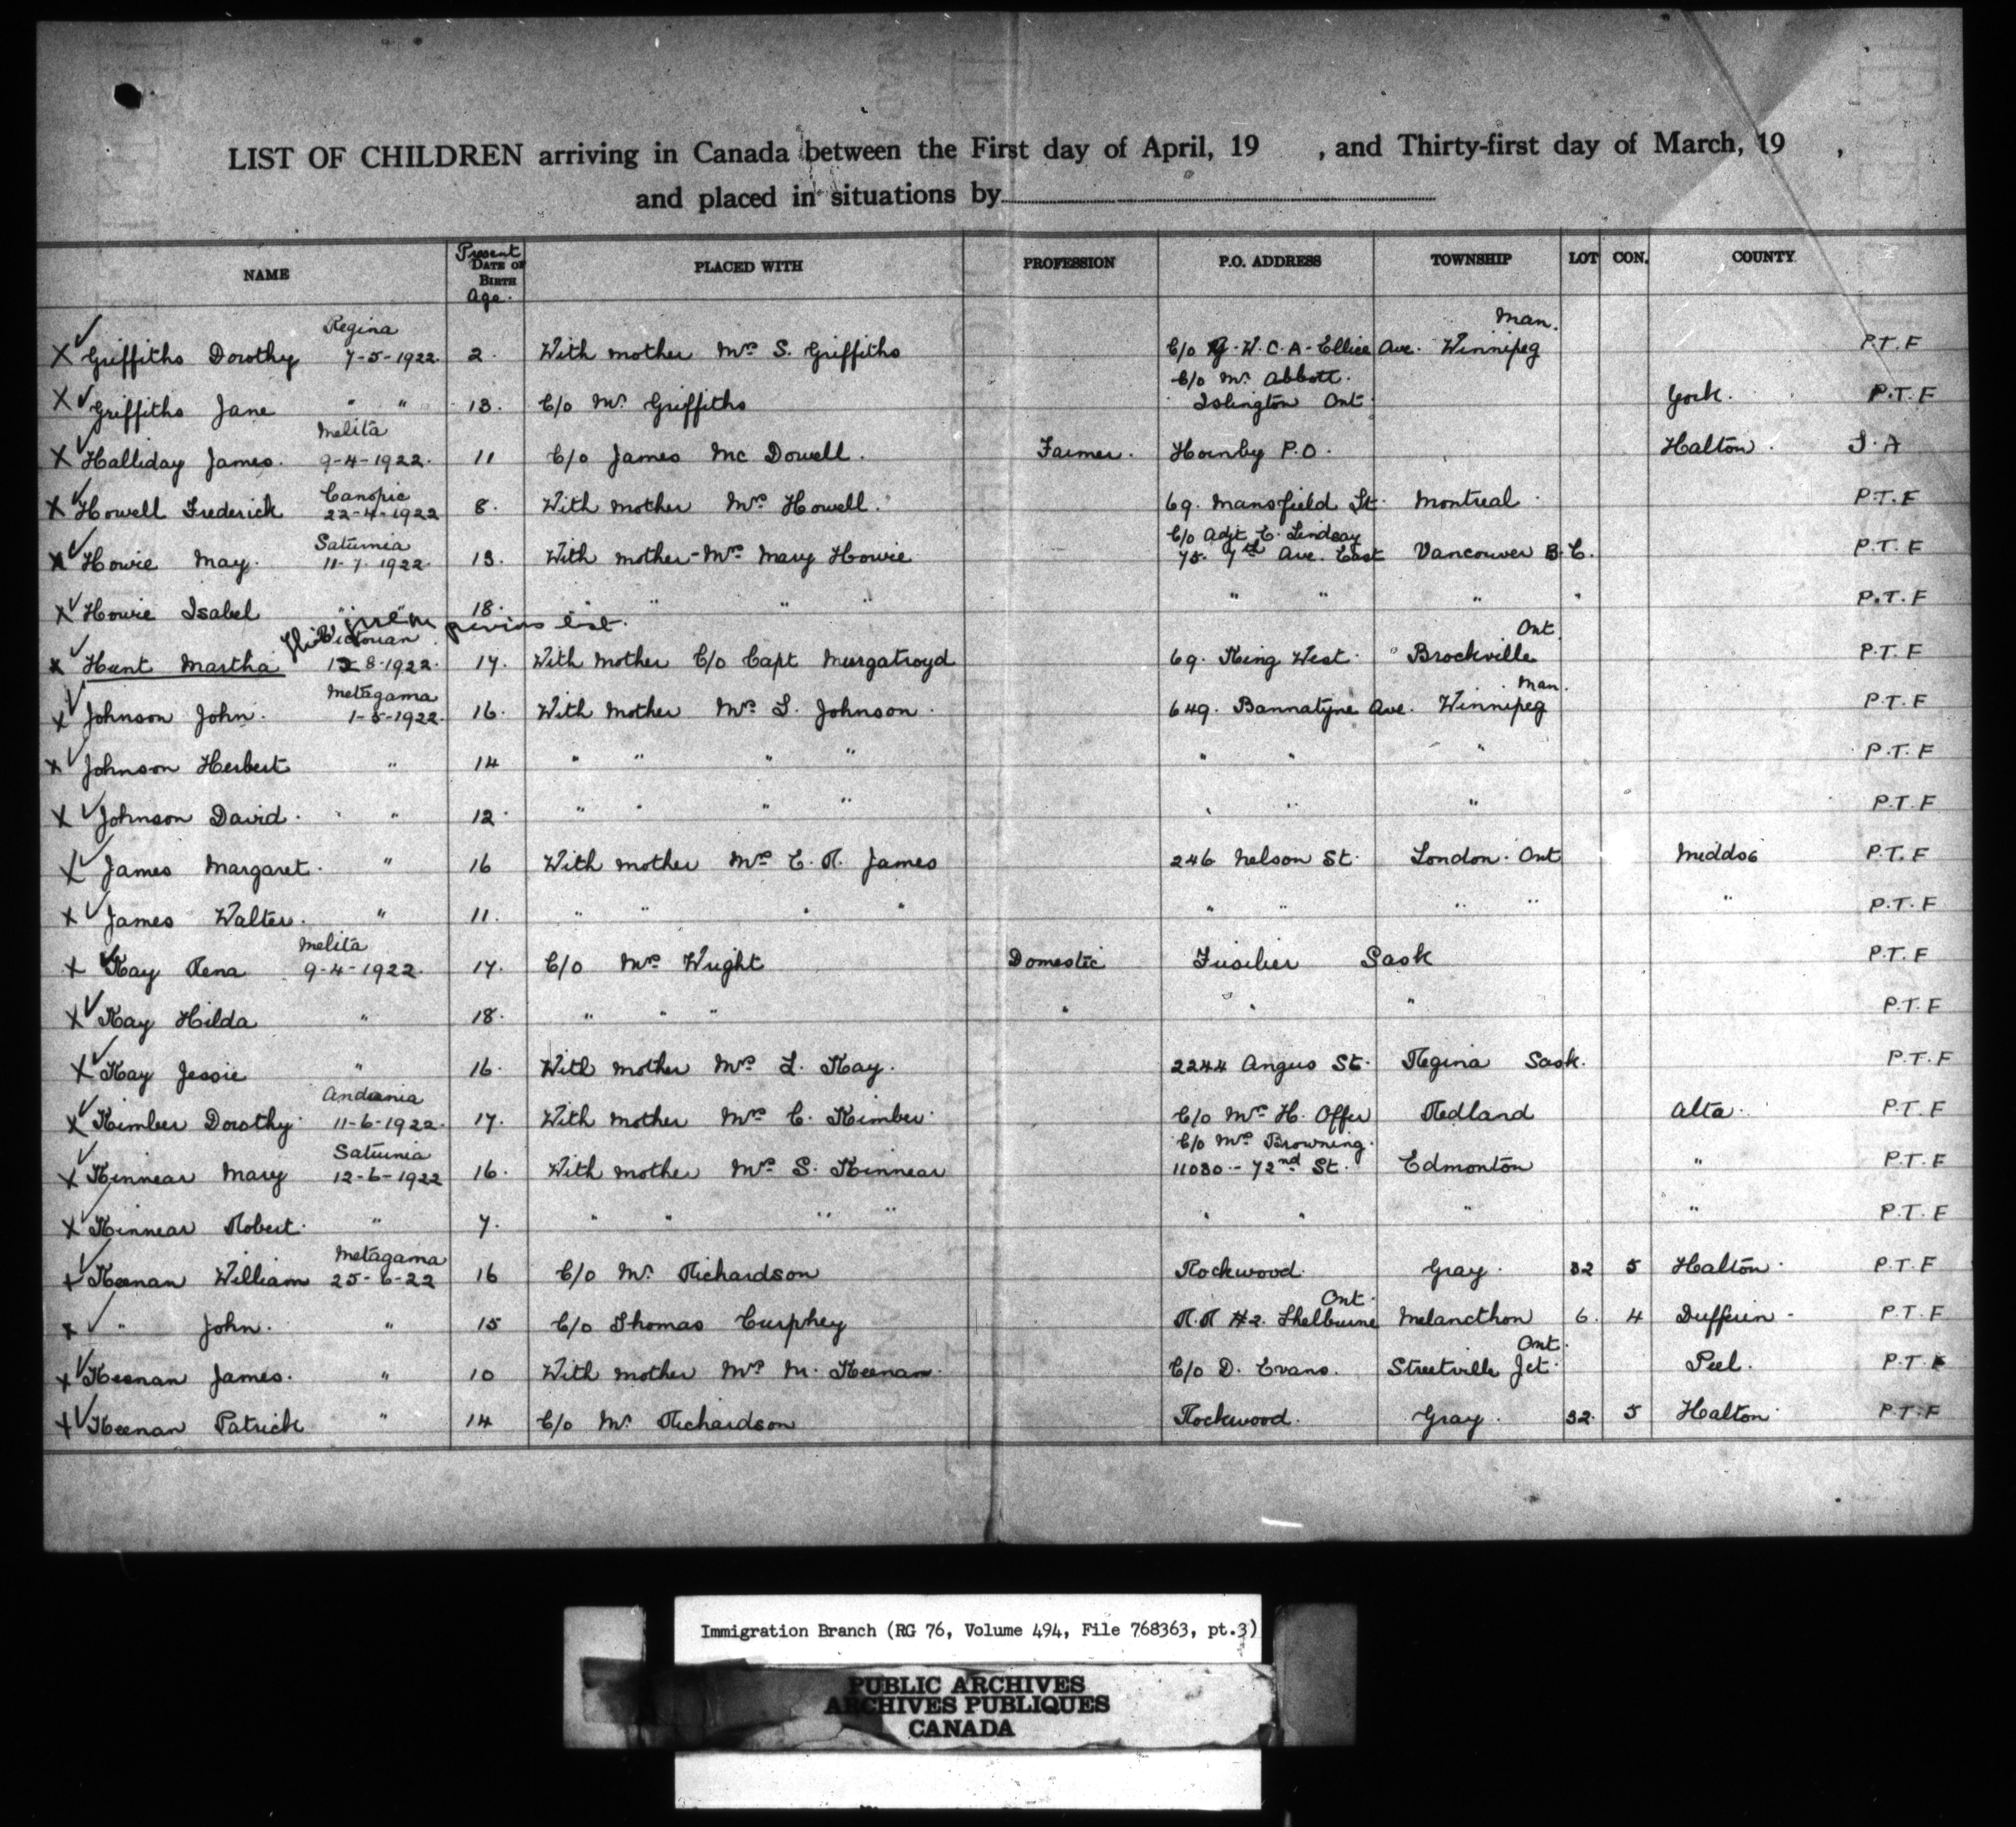 LIST OF CHILDREN arriving in Canada between the First day of April, 19    , and Thirty-first day of March, 19    ,
and placed in situations by
NAME Present DATE OF BIRTH Age. PLACED WITH PROFESSION P.O. ADDRESS TOWNSHIP LOT CON. COUNTY
Regina Man.
X ✓ Griffiths Dorothy 7-5-1922. 2. With mother Mrs S. Griffiths C/o Y.W.C.A-Ellice Ave. Winnipeg P.T.F
C/o Mr Abbott.
X ✓ Griffiths Jane " " 13. C/o Mr Griffiths Islington Ont York. P.T.F
Melita
X ✓ Halliday James. 9-4-1922. 11 C/o James Mc Dowell. Farmer. Hornby P.O. Halton. J.A
Canopic
X ✓ Howell Frederick 22-4-1922 8. With mother Mrs Howell. 69. Mansfield St. Montreal P.T.F
Saturnia C/o Adjt C. Lindsay
X ✓ Howie May. 11-7 1922. 13. With mother-Mrs Mary Howie 75. 7th Ave. East Vancouver B.C. P.T.F
X ✓ Howie Isabel " " 18. " " " " " " " " P.T.F
previous list.
Victorian Ont
X ✓ Hunt Martha 8-1922. 17. With mother C/o Capt Murgatroyd 69. King West. Brockville P.T.F
Metagama Man.
X ✓ Johnson John. 1-5-1922. 16. With mother Mrs S. Johnson. 649. Bannatyne Ave. Winnipeg P.T.F
X ✓ Johnson Herbert " 14 " " " " " " " P.T.F
X ✓ Johnson David. " 12. " " " " " " " P.T.F
X ✓ James Margaret. " 16 With mother Mrs C. R. James 246 Nelson St. London. Ont P.T.F
X ✓ James Walter. " 11. " " " " " " " " " P.T.F
Melita
X ✓ Kay Rena 9-4-1922. 17. C/o Mrs Wright Domestic Fusilier Sask P.T.F
X ✓ Kay Hilda " 18. " " " " " " P.T.F
X ✓ Kay Jessie " 16. With mother Mrs L. Kay. 2244 Angus St. Regina Sask. P.T.F
Andania
X ✓ Kimber Dorothy 11-6-1922. 17. With mother Mrs C. Kimber C/o Mrs H. Offer Redland Alta. P.T.F
Saturnia C/o Mrs Browning.
X ✓ Kinnear Mary 12-6-1922 16. With mother Mrs S. Kinnear 11030-72nd St. Edmonton " P.T.F
X ✓ Kinnear Robert. " 7. " " " " " " " " P.T.F
Metagama
X ✓ Keenan William 25-6-22 16 C/o Mr Richardson Rockwood. Gray. 32 5 Halton. P.T.F
Ont.
X ✓ " John. " 15 C/o Thomas Curphey R.R #2. Shelburne Melancthon 6. 4 Dufferin - P.T.F
Ont.
X ✓ Keenan James. " 10 With mother Mrs M. Keenan. C/o D. Evans. Streetville Jct. Peel. P.T.F
X ✓ Keenan Patrick " 14 C/o Mr Richardson Rockwood. Gray. 32. 5 Halton P.T.F
Immigration Branch (RG 76, Volume 494, File 768363, pt.3)
PUBLIC ARCHIVES
ARCHIVES PUBLIQUES
CANADA